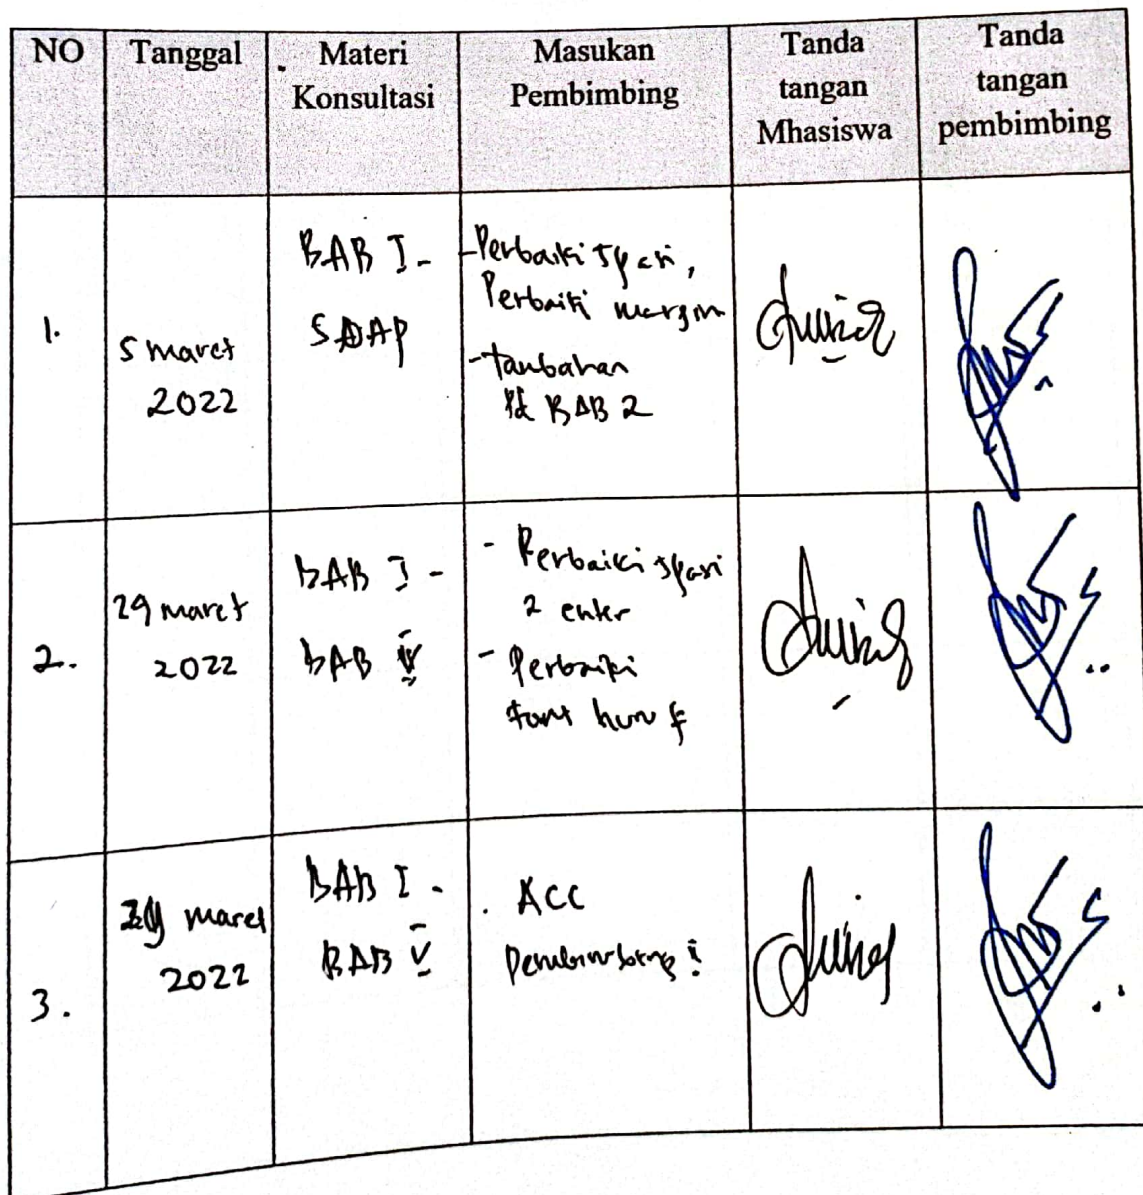 NO
Tanggal
Materi
Konsultasi
Masukan
Pembimbing
Tanda
tangan
Mhasiswa
Tanda
tangan
pembimbing
1.
5 maret
2022
BAB I -
SDAP
- Perbaiki spasi,
Perbaiki margin
- tambahan
Pd BAB 2
2.
29 maret
2022
BAB I -
BAB IV
- Perbaiki spasi
2 enter
- Perbaiki
font huruf
3.
maret
2022
BAB I -
BAB V
. ACC
Pembimbing i